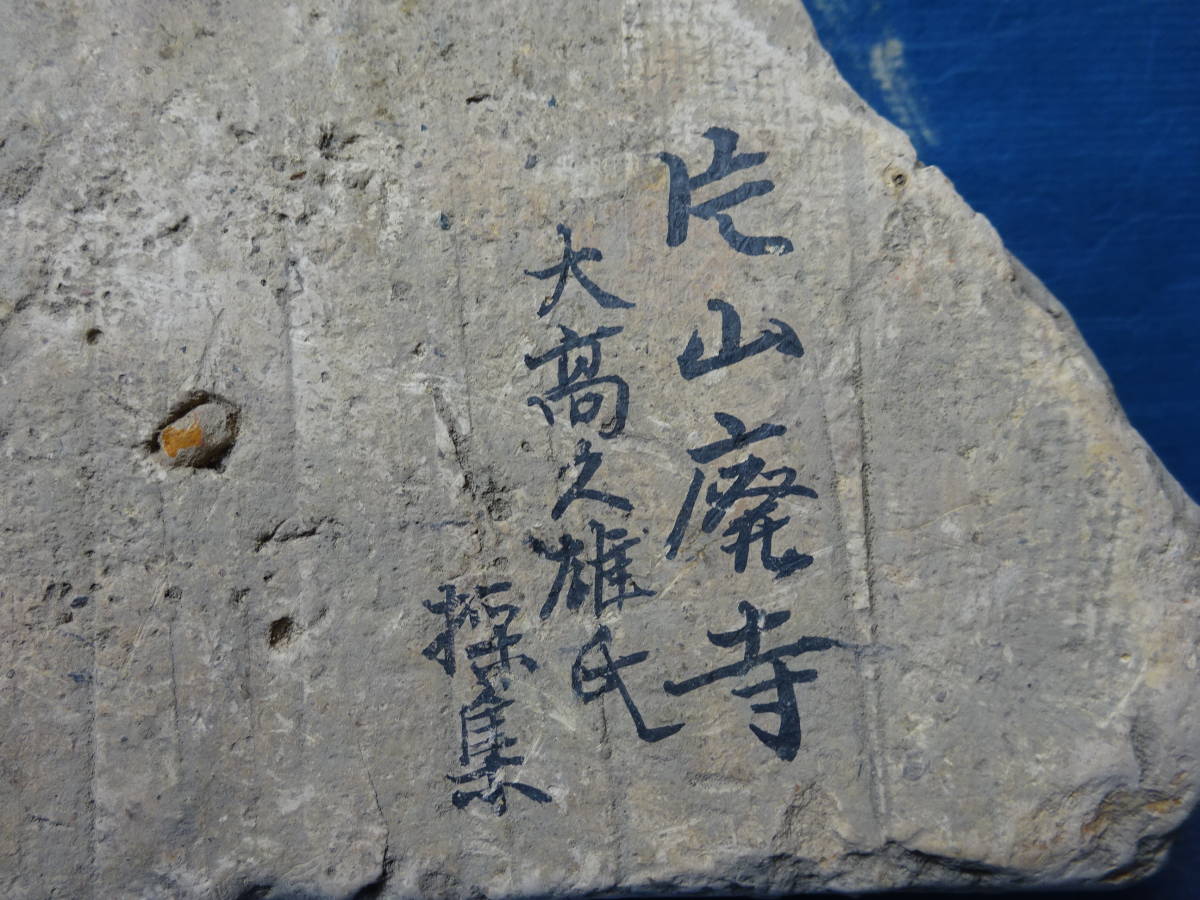 片山廃寺
大高久雄氏
採集